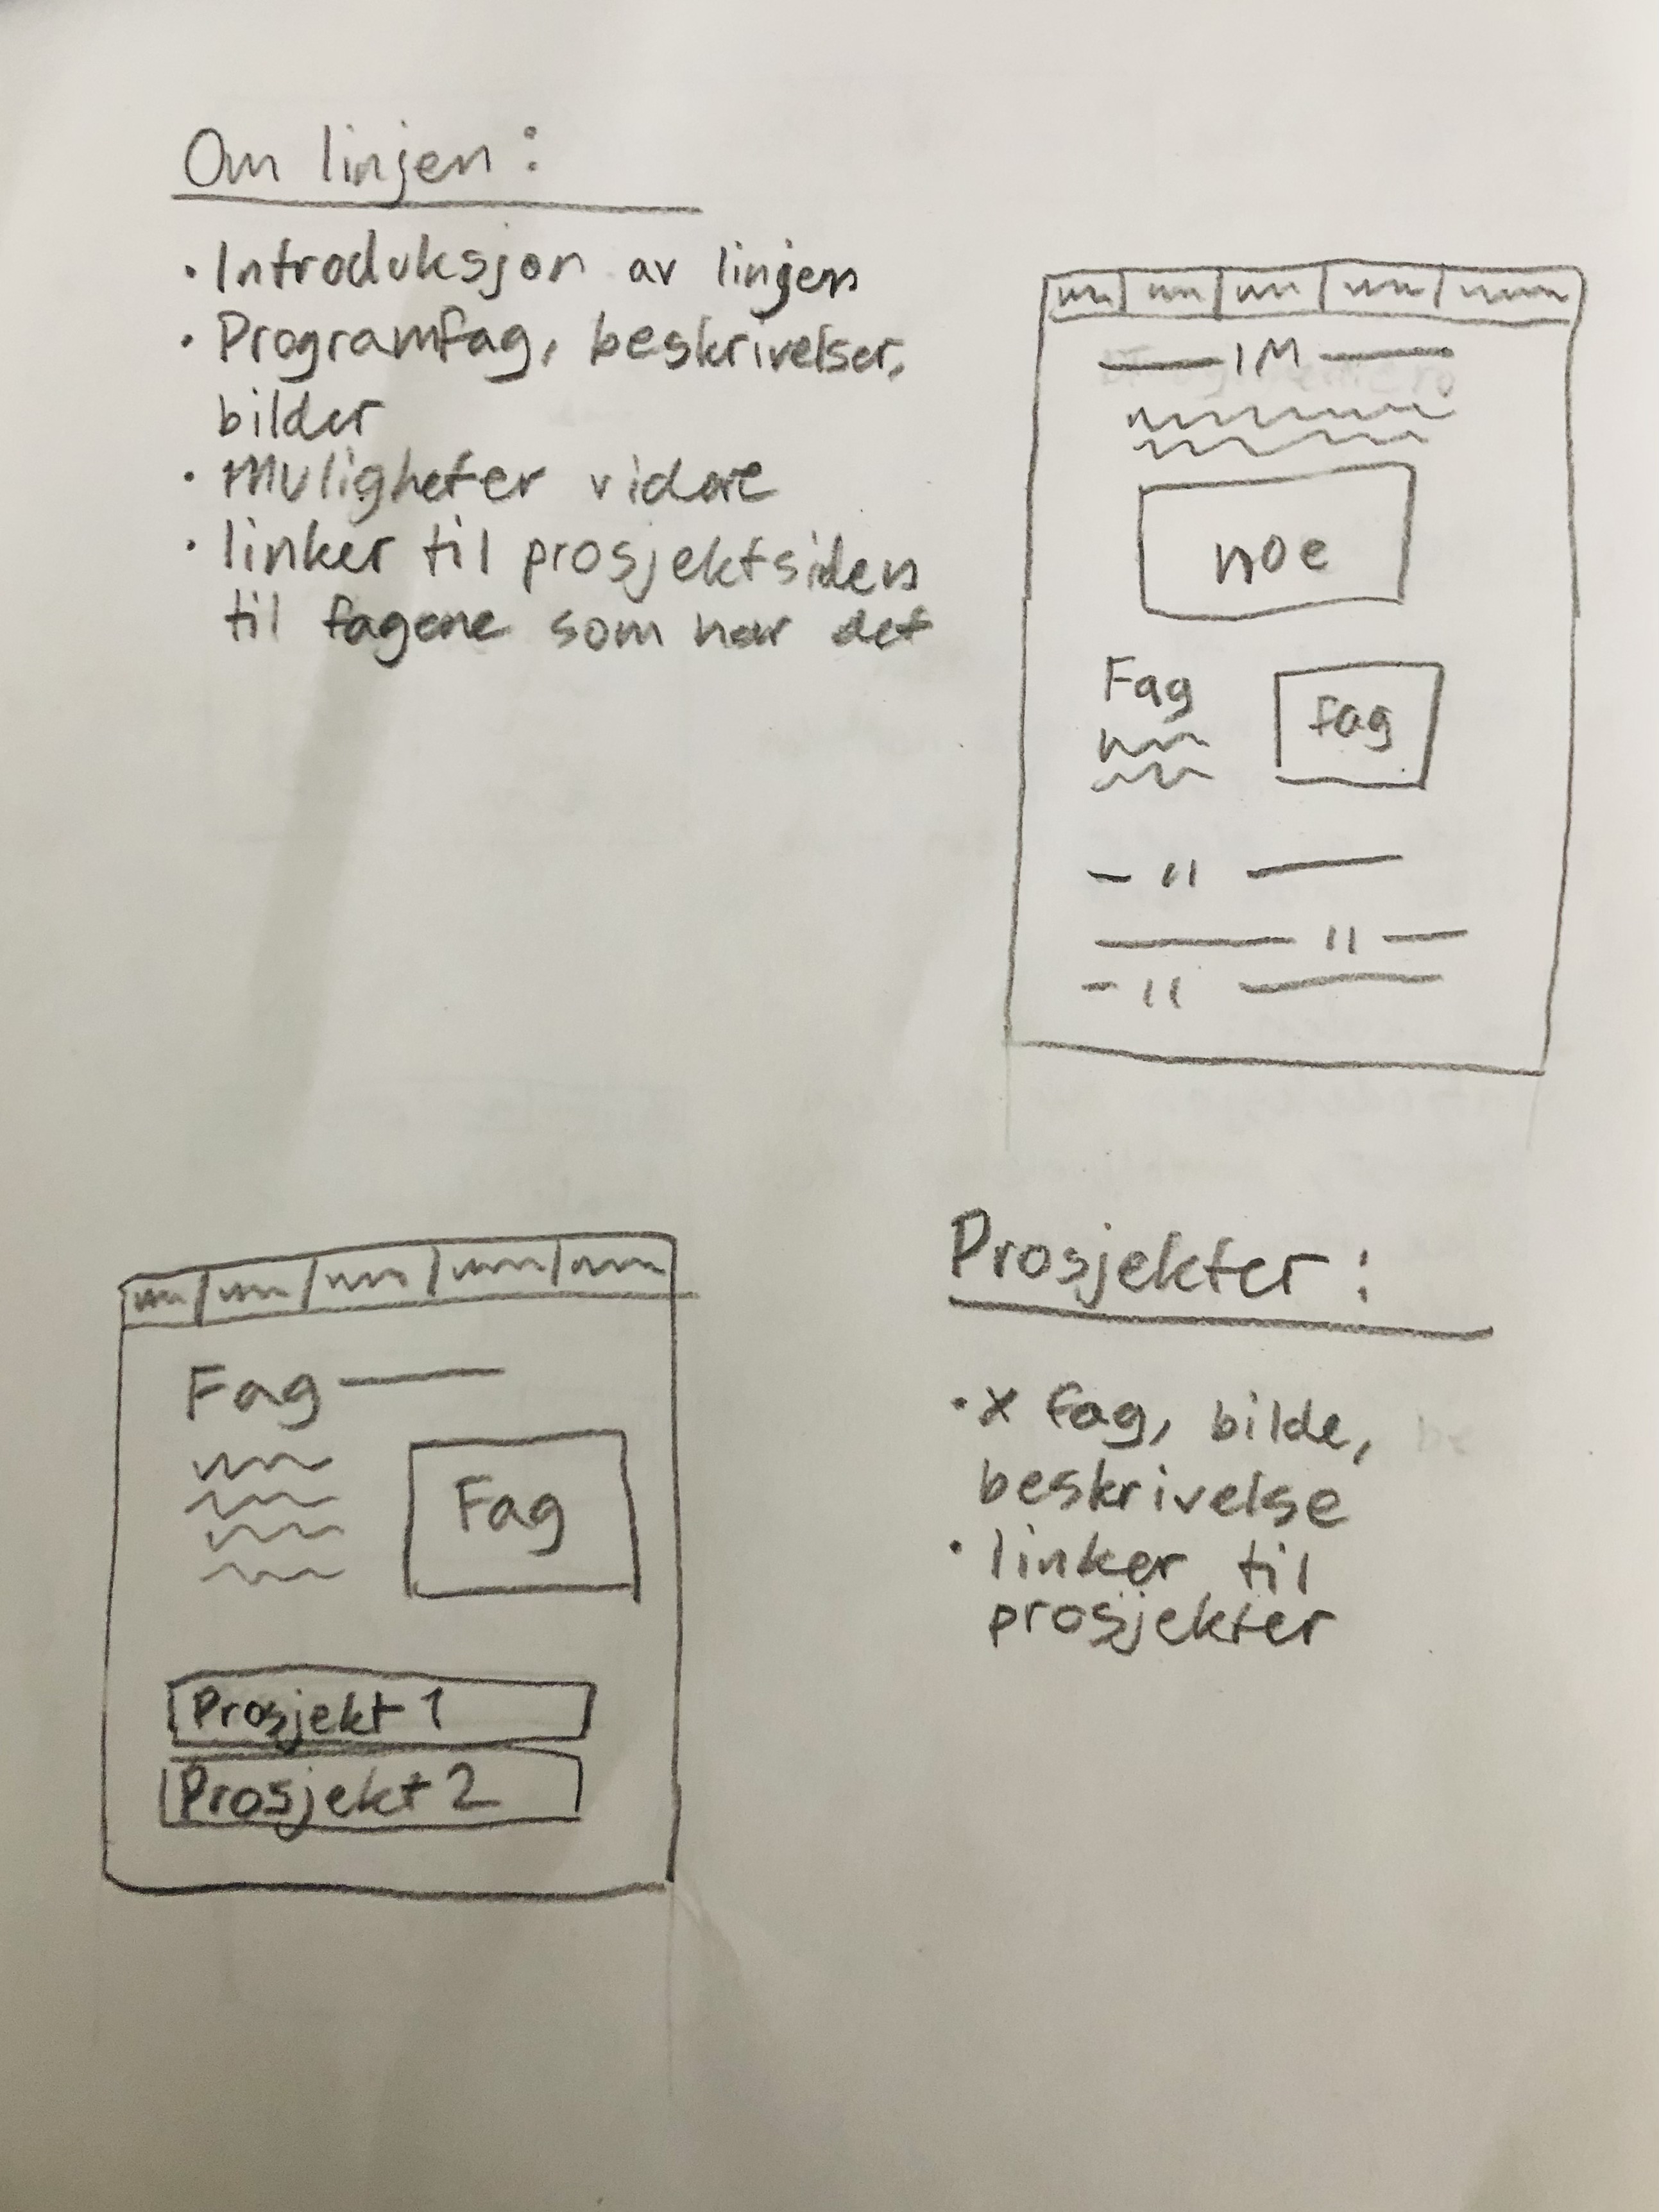 Om linjen:
• Introduksjon av linjen
• Programfag, beskrivelser,
bilder
• Muligheter videre
• linker til prosjektsiden
til fagene som har det
IM
noe
Fag
fag
Fag
Fag
Prosjekt 1
Prosjekt 2
Prosjekter:
• X fag, bilde,
beskrivelse
• linker til
prosjekter